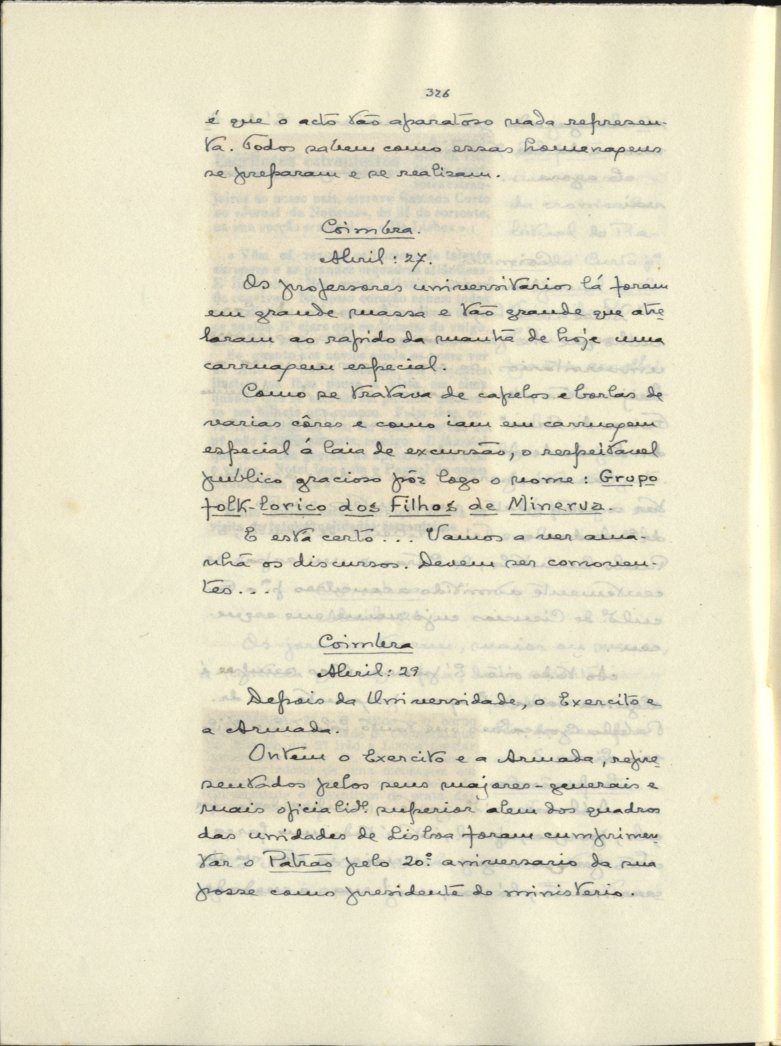 326
é que o acto tão aparatoso nada represen-
ta. Todos sabem como essas homenagens
se preparam e se realizam.
Coimbra.
Abril: 27.
Os professores universitarios lá foram
em grande massa e tão grande que atre-
laram ao rapido da manhã de hoje uma
carruagem especial.
Como se tratava de capelos e borlas de
varias côres e como iam em carruagem
especial á laia de excursão, o respeitavel
publico gracioso pôz logo o nome: Grupo
folk-lorico dos Filhos de Minerva.
E está certo... Vamos a ver ama-
nhã os discursos. Devem ser comoven-
tes...
Coimbra
Abril: 29
Depois da Universidade, o Exercito e
a Armada.
Ontem o Exercito e a Armada, repre-
sentados pelos seus majores-generais e
mais oficialid.e superior alem dos quadros
das unidades de Lisboa foram cumprimen-
tar o Patrão pelo 20.º aniversario da sua
posse como presidente do ministerio.